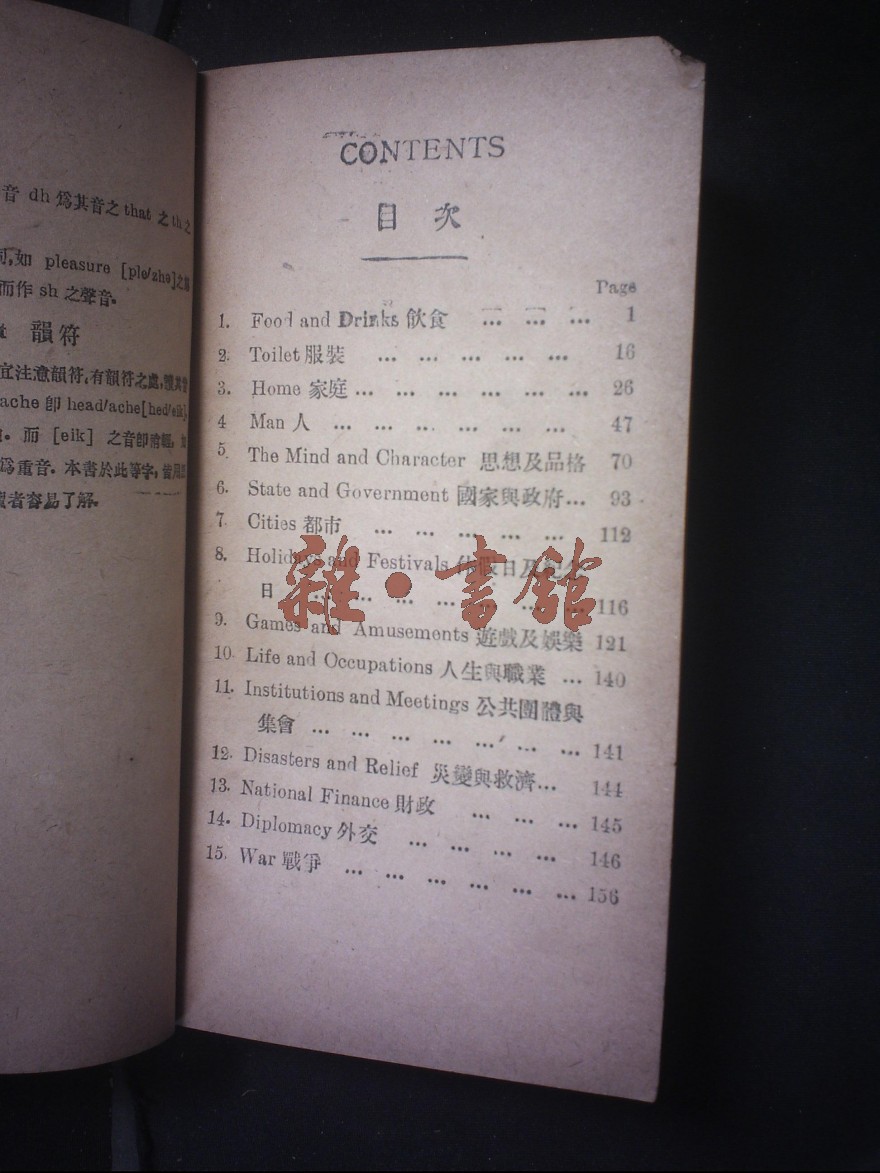 音 dh 爲其音之 that 之 th 之
如 pleasure [ple/zhə]之
而作 sh 之聲音.
韻符
宜注意韻符,有韻符之處,
ache 卽 head/ache[hed/eik],
而 [eik] 之音卽
爲重音. 本書於此等字,
讀者容易了解.
CONTENTS
目次
Page
1. Food and Drinks 飲食 ... ... ... 1
2. Toilet 服裝 ... ... ... ... ... 16
3. Home 家庭 ... ... ... ... ... ... 26
4 Man 人 ... ... ... ... ... ... 47
5. The Mind and Character 思想及品格 70
6. State and Government 國家與政府... 93
7. Cities 都市 ... ... ... ... ... 112
8. Holidays and Festivals 休假日及紀念
日 ... ... ... ... ... ... ... 116
9. Games and Amusements 遊戲及娛樂 121
10. Life and Occupations 人生與職業 ... 140
11. Institutions and Meetings 公共團體與
集會 ... ... ... ... ... ... ... 141
12. Disasters and Relief 災變與救濟... 144
13. National Finance 財政 ... ... ... 145
14. Diplomacy 外交 ... ... ... ... 146
15. War 戰爭 ... ... ... ... ... ... 156
雜·書館